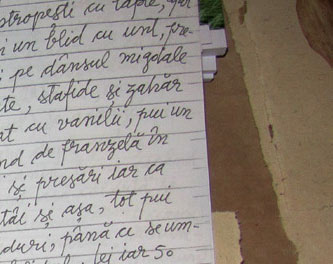 stropești cu lapte,
un blid cu unt, pre-
pe dânsul migdale
te, stafide și zahăr
at cu vanilii, pui un
nd de franzelă în
și presări iar ca
tăi și așa, tot pui
duri, până ce se um-
lei iar 50